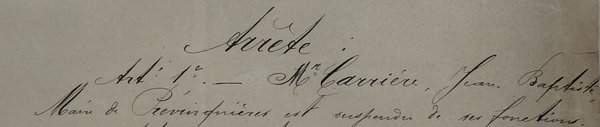 Arrête :
Art: 1er. — Mr. Carrière, Jean Baptiste
Maire de Prévinquières est suspendu de ses fonctions.